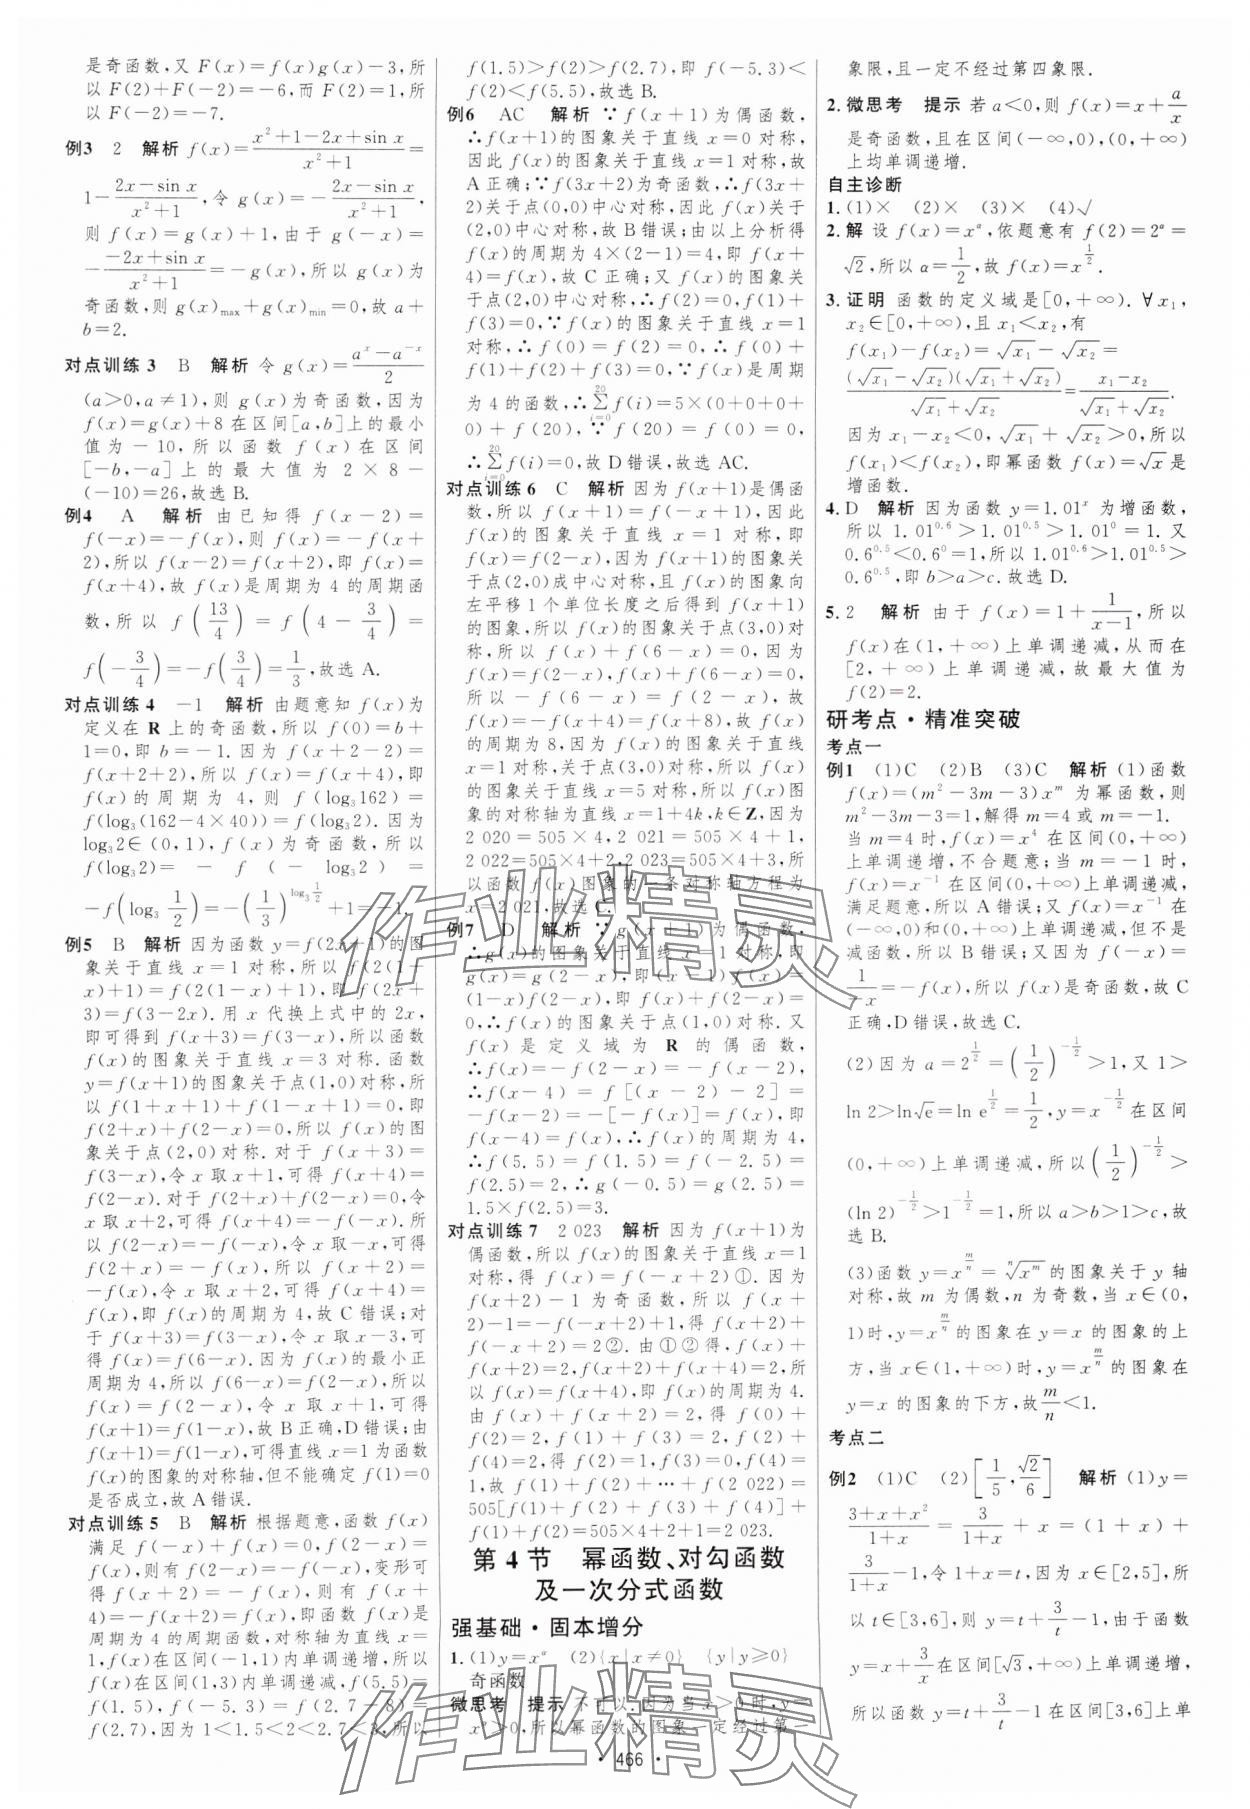 是奇函数,又 F(x)=f(x)g(x)-3,所
以 F(2)+F(-2)=-6,而 F(2)=1,所
以 F(-2)=-7.
例3 2 解析 f(x)=\frac{x²+1-2x+sin x}{x²+1}=
1-\frac{2x-sin x}{x²+1},令 g(x)=-\frac{2x-sin x}{x²+1},
则 f(x)=g(x)+1,由于 g(-x)=
-\frac{-2x+sin x}{x²+1}=-g(x),所以 g(x)为
奇函数,则 g(x)max+g(x)min=0,故 a+
b=2.
对点训练3 B 解析 令 g(x)=\frac{a^x-a^{-x}}{2}
(a>0,a≠1),则 g(x)为奇函数,因为
f(x)=g(x)+8在区间[a,b]上的最小
值为-10,所以函数 f(x)在区间
[-b,-a]上的最大值为 2×8-
(-10)=26,故选 B.
例4 A 解析 由已知得 f(x-2)=
f(-x)=-f(x),则 f(x)=-f(x+
2),所以 f(x-2)=f(x+2),即 f(x)=
f(x+4),故 f(x)是周期为4的周期函
数,所以 f(\frac{13}{4})=f(4-\frac{3}{4})=
f(-\frac{3}{4})=-f(\frac{3}{4})=\frac{1}{3},故选 A.
对点训练4 -1 解析 由题意知 f(x)为
定义在 R 上的奇函数,所以 f(0)=b+
1=0,即 b=-1. 因为 f(x+2-2)=
f(x+2+2),所以 f(x)=f(x+4),即
f(x)的周期为 4,则 f(log₃162)=
f(log₃(162-4×40))=f(log₃2). 因为
log₃2∈(0,1),f(x)为奇函数,所以
f(log₃2)=-f(-log₃2)=
-f(log₃\frac{1}{2})=-(\frac{1}{3})^{log₃\frac{1}{2}}+1=-1.
例5 B 解析 因为函数 y=f(2x+1)的图
象关于直线 x=1 对称,所以 f(2(1+
x)+1)=f(2(1-x)+1),即 f(2x+
3)=f(3-2x). 用 x 代换上式中的 2x,
即可得到 f(x+3)=f(3-x),所以函数
f(x)的图象关于直线 x=3 对称. 函数
y=f(x+1)的图象关于点(1,0)对称,所
以 f(1+x+1)+f(1-x+1)=0,即
f(2+x)+f(2-x)=0,所以 f(x)的图
象关于点(2,0)对称. 对于 f(x+3)=
f(3-x),令 x 取 x+1,可得 f(x+4)=
f(2-x). 对于 f(2+x)+f(2-x)=0,令
x 取 x+2,可得 f(x+4)=-f(-x). 所
以 f(2-x)=-f(-x),所以 f(x+2)=
-f(x),令 x 取 x+2,可得 f(x+4)=
f(x),即 f(x)的周期为4,故 C 错误;对
于 f(x+3)=f(3-x),令 x 取 x-3,可
得 f(x)=f(6-x). 因为 f(x)的最小正
周期为4,所以 f(6-x)=f(2-x),所以
f(x)=f(2-x),令 x 取 x+1,可得
f(x+1)=f(1-x),故 B 正确,D 错误;由
f(x+1)=f(1-x),可得直线 x=1 为函数
f(x)的图象的对称轴,但不能确定 f(1)=0
是否成立,故 A 错误.
对点训练5 B 解析 根据题意,函数 f(x)
满足 f(-x)+f(x)=0,f(2-x)=
f(x),则有 f(2-x)=-f(-x),变形可
得 f(x+2)=-f(x),则有 f(x+
4)=-f(x+2)=f(x),即函数 f(x)是
周期为4的周期函数,对称轴为直线 x=
1,f(x)在区间(-1,1)内单调递增,所
以 f(x)在区间(1,3)内单调递减,f(5.5)=
f(1.5),f(-5.3)=f(2.7-8)=
f(2.7),因为1<1.5<2<2.7<3,所以
f(1.5)>f(2)>f(2.7),即 f(-5.3)<
f(2)<f(5.5),故选 B.
例6 AC 解析 ∵f(x+1)为偶函数,
∴f(x+1)的图象关于直线 x=0 对称,
因此 f(x)的图象关于直线 x=1 对称,故
A 正确;∵f(3x+2)为奇函数,∴f(3x+
2)关于点(0,0)中心对称,因此 f(x)关于
(2,0)中心对称,故 B 错误;由以上分析得
f(x)的周期为 4×(2-1)=4,即 f(x+
4)=f(x),故 C 正确;又 f(x)的图象关
于点(2,0)中心对称,∴f(2)=0,f(1)+
f(3)=0. ∵f(x)的图象关于直线 x=1
对称,∴f(0)=f(2)=0,∴f(0)+
f(1)+f(2)+f(3)=0. ∵f(x)是周期
为4的函数,∴\sum_{i=0}^{20}f(i)=5×(0+0+0+
0)+f(20),∵f(20)=f(0)=0,
∴\sum_{i=0}^{20}f(i)=0,故 D 错误,故选 AC.
对点训练6 C 解析 因为 f(x+1)是偶函
数,所以 f(x+1)=f(-x+1),因此
f(x)的图象关于直线 x=1 对称,即
f(x)=f(2-x),因为 f(x+1)的图象关
于点(2,0)成中心对称,且 f(x)的图象向
左平移1个单位长度之后得到 f(x+1)
的图象,所以 f(x)的图象关于点(3,0)对
称,所以 f(x)+f(6-x)=0,因为
f(x)=f(2-x),f(x)+f(6-x)=0,
所以-f(6-x)=f(2-x),故
f(x)=-f(x+4)=f(x+8),故 f(x)
的周期为8,因为 f(x)的图象关于直线
x=1对称,关于点(3,0)对称,所以 f(x)
的图象关于直线 x=5 对称,所以 f(x)图
象的对称轴为直线 x=1+4k,k∈Z,因为
2 020=505×4,2 021=505×4+1,
2 022=505×4+2,2 023=505×4+3,所
以函数 f(x)图象的一条对称轴方程为
x=2 021,故选 C.
例7 D 解析 ∵g(x+1)为偶函数,
∴g(x)的图象关于直线 x=1 对称,即
g(x)=g(2-x),即(x-1)f(x)=
(1-x)f(2-x),即 f(x)+f(2-x)=
0,∴f(x)关于点(1,0)对称. 又
f(x)是定义域为 R 的偶函数,
∴f(x)=-f(2-x)=-f(x-2),
∴f(x-4)=f[(x-2)-2]=
-f(x-2)=-[-f(x)]=f(x),即
f(x-4)=f(x),∴f(x)的周期为4,
∴f(5.5)=f(1.5)=f(-2.5)=
f(2.5)=2,∴g(-0.5)=g(2.5)=
1.5×f(2.5)=3.
对点训练7 2 023 解析 因为 f(x+1)为
偶函数,所以 f(x)的图象关于直线 x=1
对称,得 f(x)=f(-x+2)①. 因为
f(x+2)-1 为奇函数,所以 f(x+
2)-1=-f(-x+2)+1,得 f(x+2)+
f(-x+2)=2②. 由①②得,f(x)+
f(x+2)=2,f(x+2)+f(x+4)=2,所
以 f(x)=f(x+4),即 f(x)的周期为4.
由 f(x)+f(x+2)=2,得 f(0)+
f(2)=2,f(1)+f(3)=2,f(2)+
f(4)=2,得 f(2)=1,f(0)=f(4)=
1,故 f(1)+f(2)+…+f(2 022)=
505[f(1)+f(2)+f(3)+f(4)]+
f(1)+f(2)=505×4+2+1=2 023.
第4节 幂函数、对勾函数
及一次分式函数
强基础·固本增分
1.(1)y=x^α (2){x|x≠0} {y|y≥0}
奇函数
微思考 提示 不可以.因为当 x>0时,y=
x^α>0,所以幂函数的图象一定经过第一
象限,且一定不经过第四象限.
2.微思考 提示 若 a<0,则 f(x)=x+\frac{a}{x}
是奇函数,且在区间(-∞,0),(0,+∞)
上均单调递增.
自主诊断
1.(1)× (2)× (3)× (4)√
2.解 设 f(x)=x^α,依题意有 f(2)=2^α=
√2,所以 α=\frac{1}{2},故 f(x)=x^{\frac{1}{2}}.
3.证明 函数的定义域是[0,+∞). ∀x₁,
x₂∈[0,+∞),且 x₁<x₂,有
f(x₁)-f(x₂)=√x₁-√x₂=
\frac{(√x₁-√x₂)(√x₁+√x₂)}{√x₁+√x₂}=\frac{x₁-x₂}{√x₁+√x₂}.
因为 x₁-x₂<0,√x₁+√x₂>0,所以
f(x₁)<f(x₂),即幂函数 f(x)=√x是
增函数.
4.D 解析 因为函数 y=1.01^x 为增函数,
所以 1.01^{0.6}>1.01^{0.5}>1.01^0=1. 又
0.6^{0.5}<0.6^0=1,所以1.01^{0.6}>1.01^{0.5}>
0.6^{0.5},即 b>a>c.故选 D.
5.2 解析 由于 f(x)=1+\frac{1}{x-1},所以
f(x)在(1,+∞)上单调递减,从而在
[2,+∞)上单调递减,故最大值为
f(2)=2.
研考点·精准突破
考点一
例1 (1)C (2)B (3)C 解析 (1)函数
f(x)=(m²-3m-3)x^m 为幂函数,则
m²-3m-3=1,解得 m=4或 m=-1.
当 m=4 时,f(x)=x⁴ 在区间(0,+∞)
上单调递增,不合题意;当 m=-1 时,
f(x)=x^{-1} 在区间(0,+∞)上单调递减,
满足题意,所以 A 错误;又 f(x)=x^{-1} 在
(-∞,0)和(0,+∞)上单调递减,但不是
减函数,所以 B 错误;又因为 f(-x)=
\frac{1}{-x}=-f(x),所以 f(x)是奇函数,故 C
正确,D 错误,故选 C.
(2)因为 a=2^{\frac{1}{2}}=(\frac{1}{2})^{-\frac{1}{2}}>1,又 1>
ln 2>ln√e=ln e^{\frac{1}{2}}=\frac{1}{2},y=x^{-\frac{1}{2}} 在区间
(0,+∞)上单调递减,所以(\frac{1}{2})^{-\frac{1}{2}}>
(ln 2)^{-\frac{1}{2}}>1^{-\frac{1}{2}}=1,所以 a>b>1>c,故
选 B.
(3)函数 y=x^{\frac{m}{n}}=\sqrt[n]{x^m} 的图象关于 y 轴
对称,故 m 为偶数,n 为奇数,当 x∈(0,
1)时,y=x^{\frac{m}{n}} 的图象在 y=x 的图象的上
方,当 x∈(1,+∞)时,y=x^{\frac{m}{n}} 的图象在
y=x 的图象的下方,故\frac{m}{n}<1.
考点二
例2 (1)C (2)[\frac{1}{5},\frac{√2}{6}] 解析 (1)y=
\frac{3+x+x²}{1+x}=\frac{3}{1+x}+x=(1+x)+
\frac{3}{1+x}-1,令 1+x=t,因为 x∈[2,5],所
以 t∈[3,6],则 y=t+\frac{3}{t}-1,由于函数
y=x+\frac{3}{x}在区间[√3,+∞)上单调递增,
所以函数 y=t+\frac{3}{t}-1在区间[3,6]上单
· 466 ·
作业精灵
作业精灵